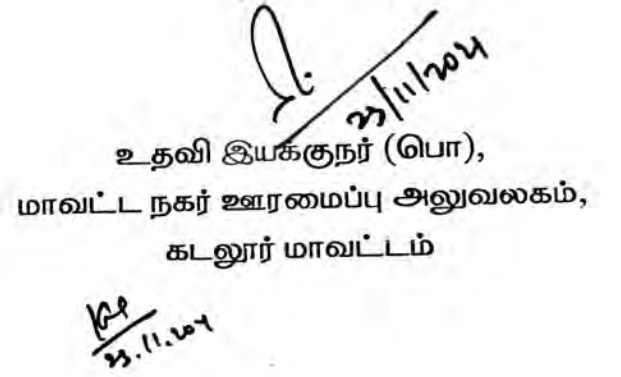 23/11/2021
உதவி இயக்குநர் (பொ),
மாவட்ட நகர் ஊரமைப்பு அலுவலகம்,
கடலூர் மாவட்டம்